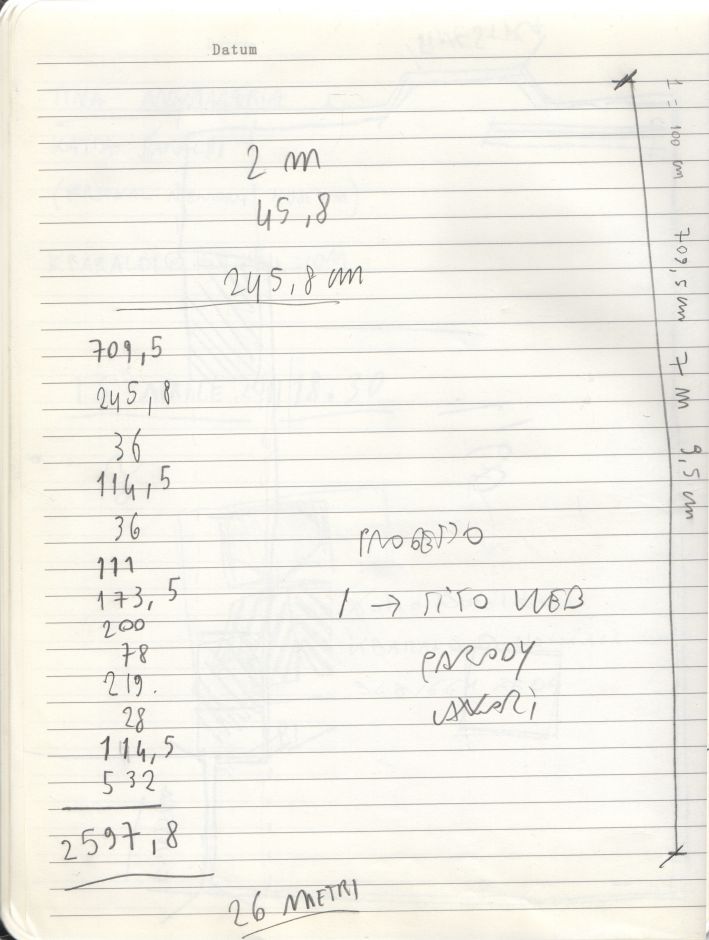 Datum
2 m
45,8
245,8 cm
709,5
245,8
36
114,5
36
111
173,5
200
78
219.
28
114,5
532
2597,8
26 METRI
PROGETTO
1 → SITO WEB
PARODY
LAVORI
1 = 100 cm
709,5 cm 7 m 9,5 cm